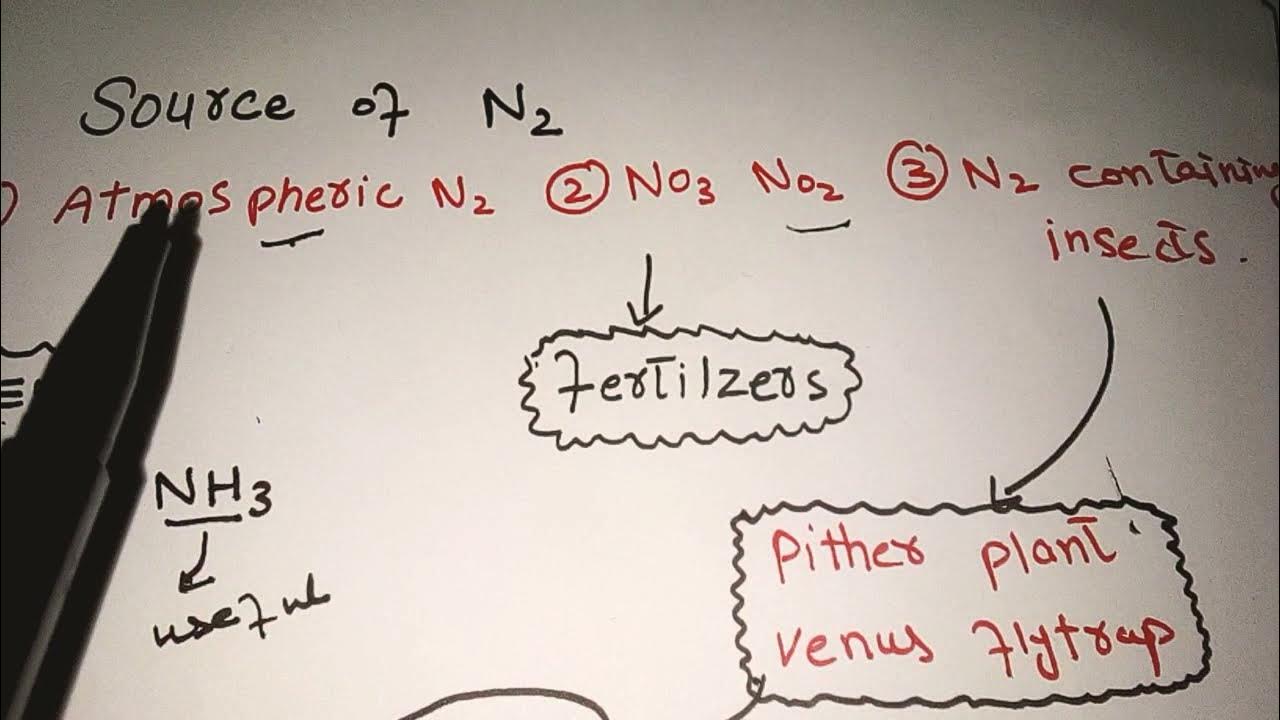 Source of N₂
) Atmospheric N₂ ② NO₃ NO₂ ③ N₂ containing
insects.
Fertilzers
NH₃
useful
Pither plant
venus flytrap